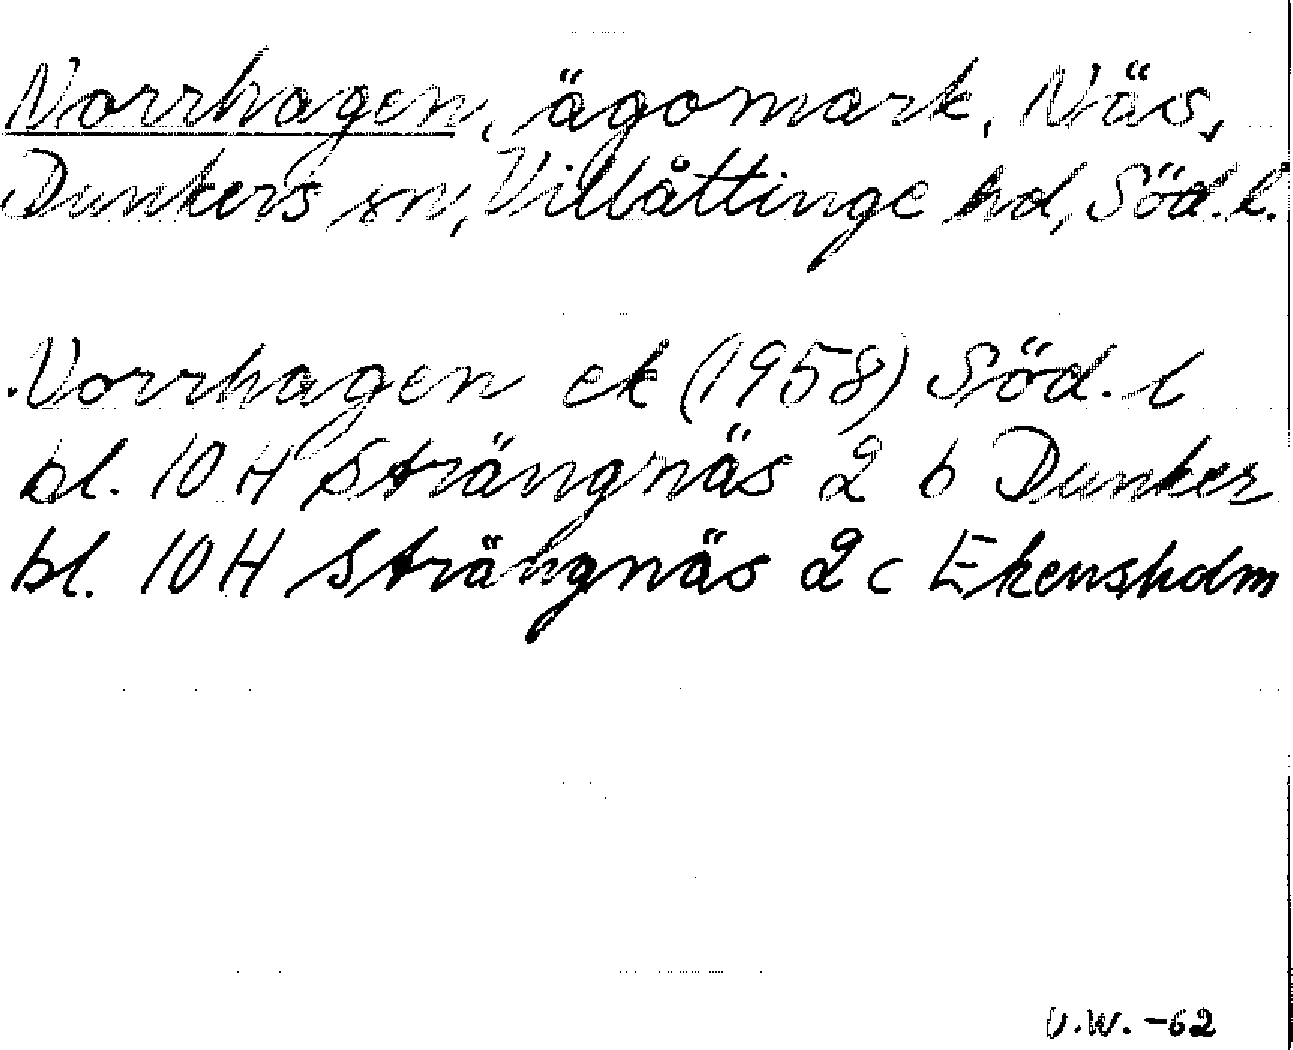 Norrhagen, ägomark, Näs,
Dunkers sn, Villåttinge hd, Söd. l.
Norrhagen ek (1958) Söd. l
bl. 10 H Strängnäs 2 b Dunker
bl. 10 H Strängnäs 2 c Ekensholm
U.W. -62